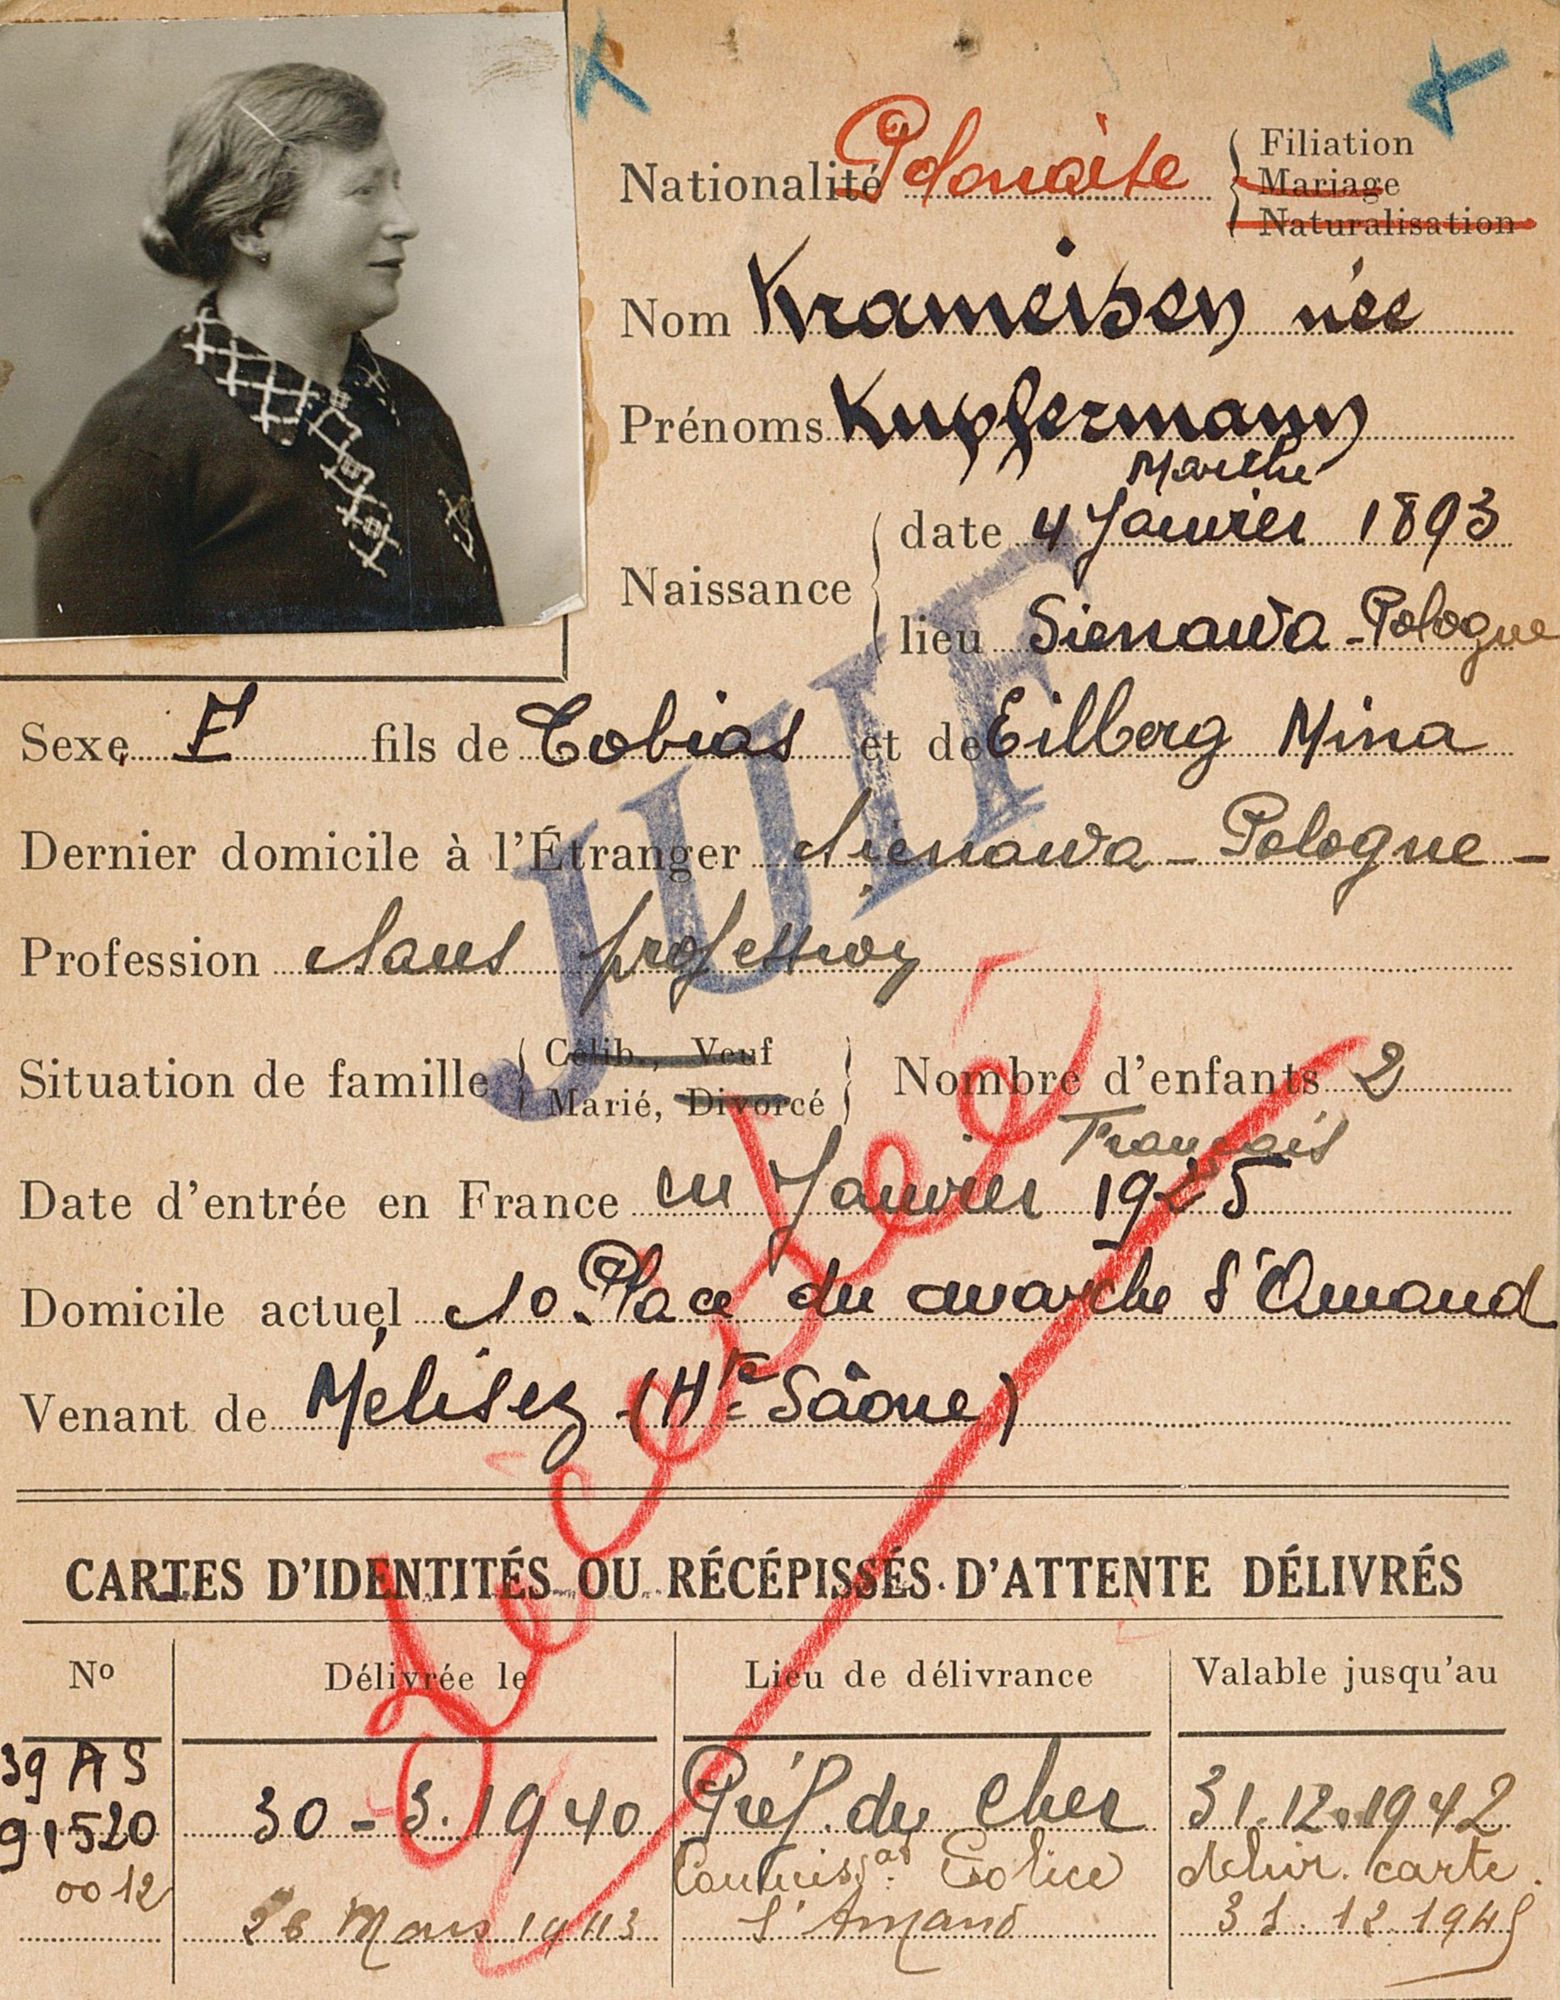 Nationalité Polonaise { Filiation
Mariage
Naturalisation
Nom Krameisen née
Prénoms Kupfermann
Marthe
Naissance { date 4 Janvier 1893
lieu Sienawa - Pologne
JUIF
Sexe F fils de Tobias et de Eilberg Mina
Dernier domicile à l'Étranger Sienawa - Pologne -
Profession Sans profession
Situation de famille { Célib., Veuf
Marié, Divorcé } Nombre d'enfants 2
Français
Date d'entrée en France en Janvier 1925
Domicile actuel 10. Place du marche St Amand
Venant de Mélisey (Hte Sâone)
Décédée
CARTES D'IDENTITÉS OU RÉCÉPISSÉS D'ATTENTE DÉLIVRÉS
No Délivrée le Lieu de délivrance Valable jusqu'au
39 AS
91520 30-3.1940 Préf. du Cher 31.12.1942
0012 Commissat Police deliv. carte.
26 Mars 1943 St Amand 31.12.1945